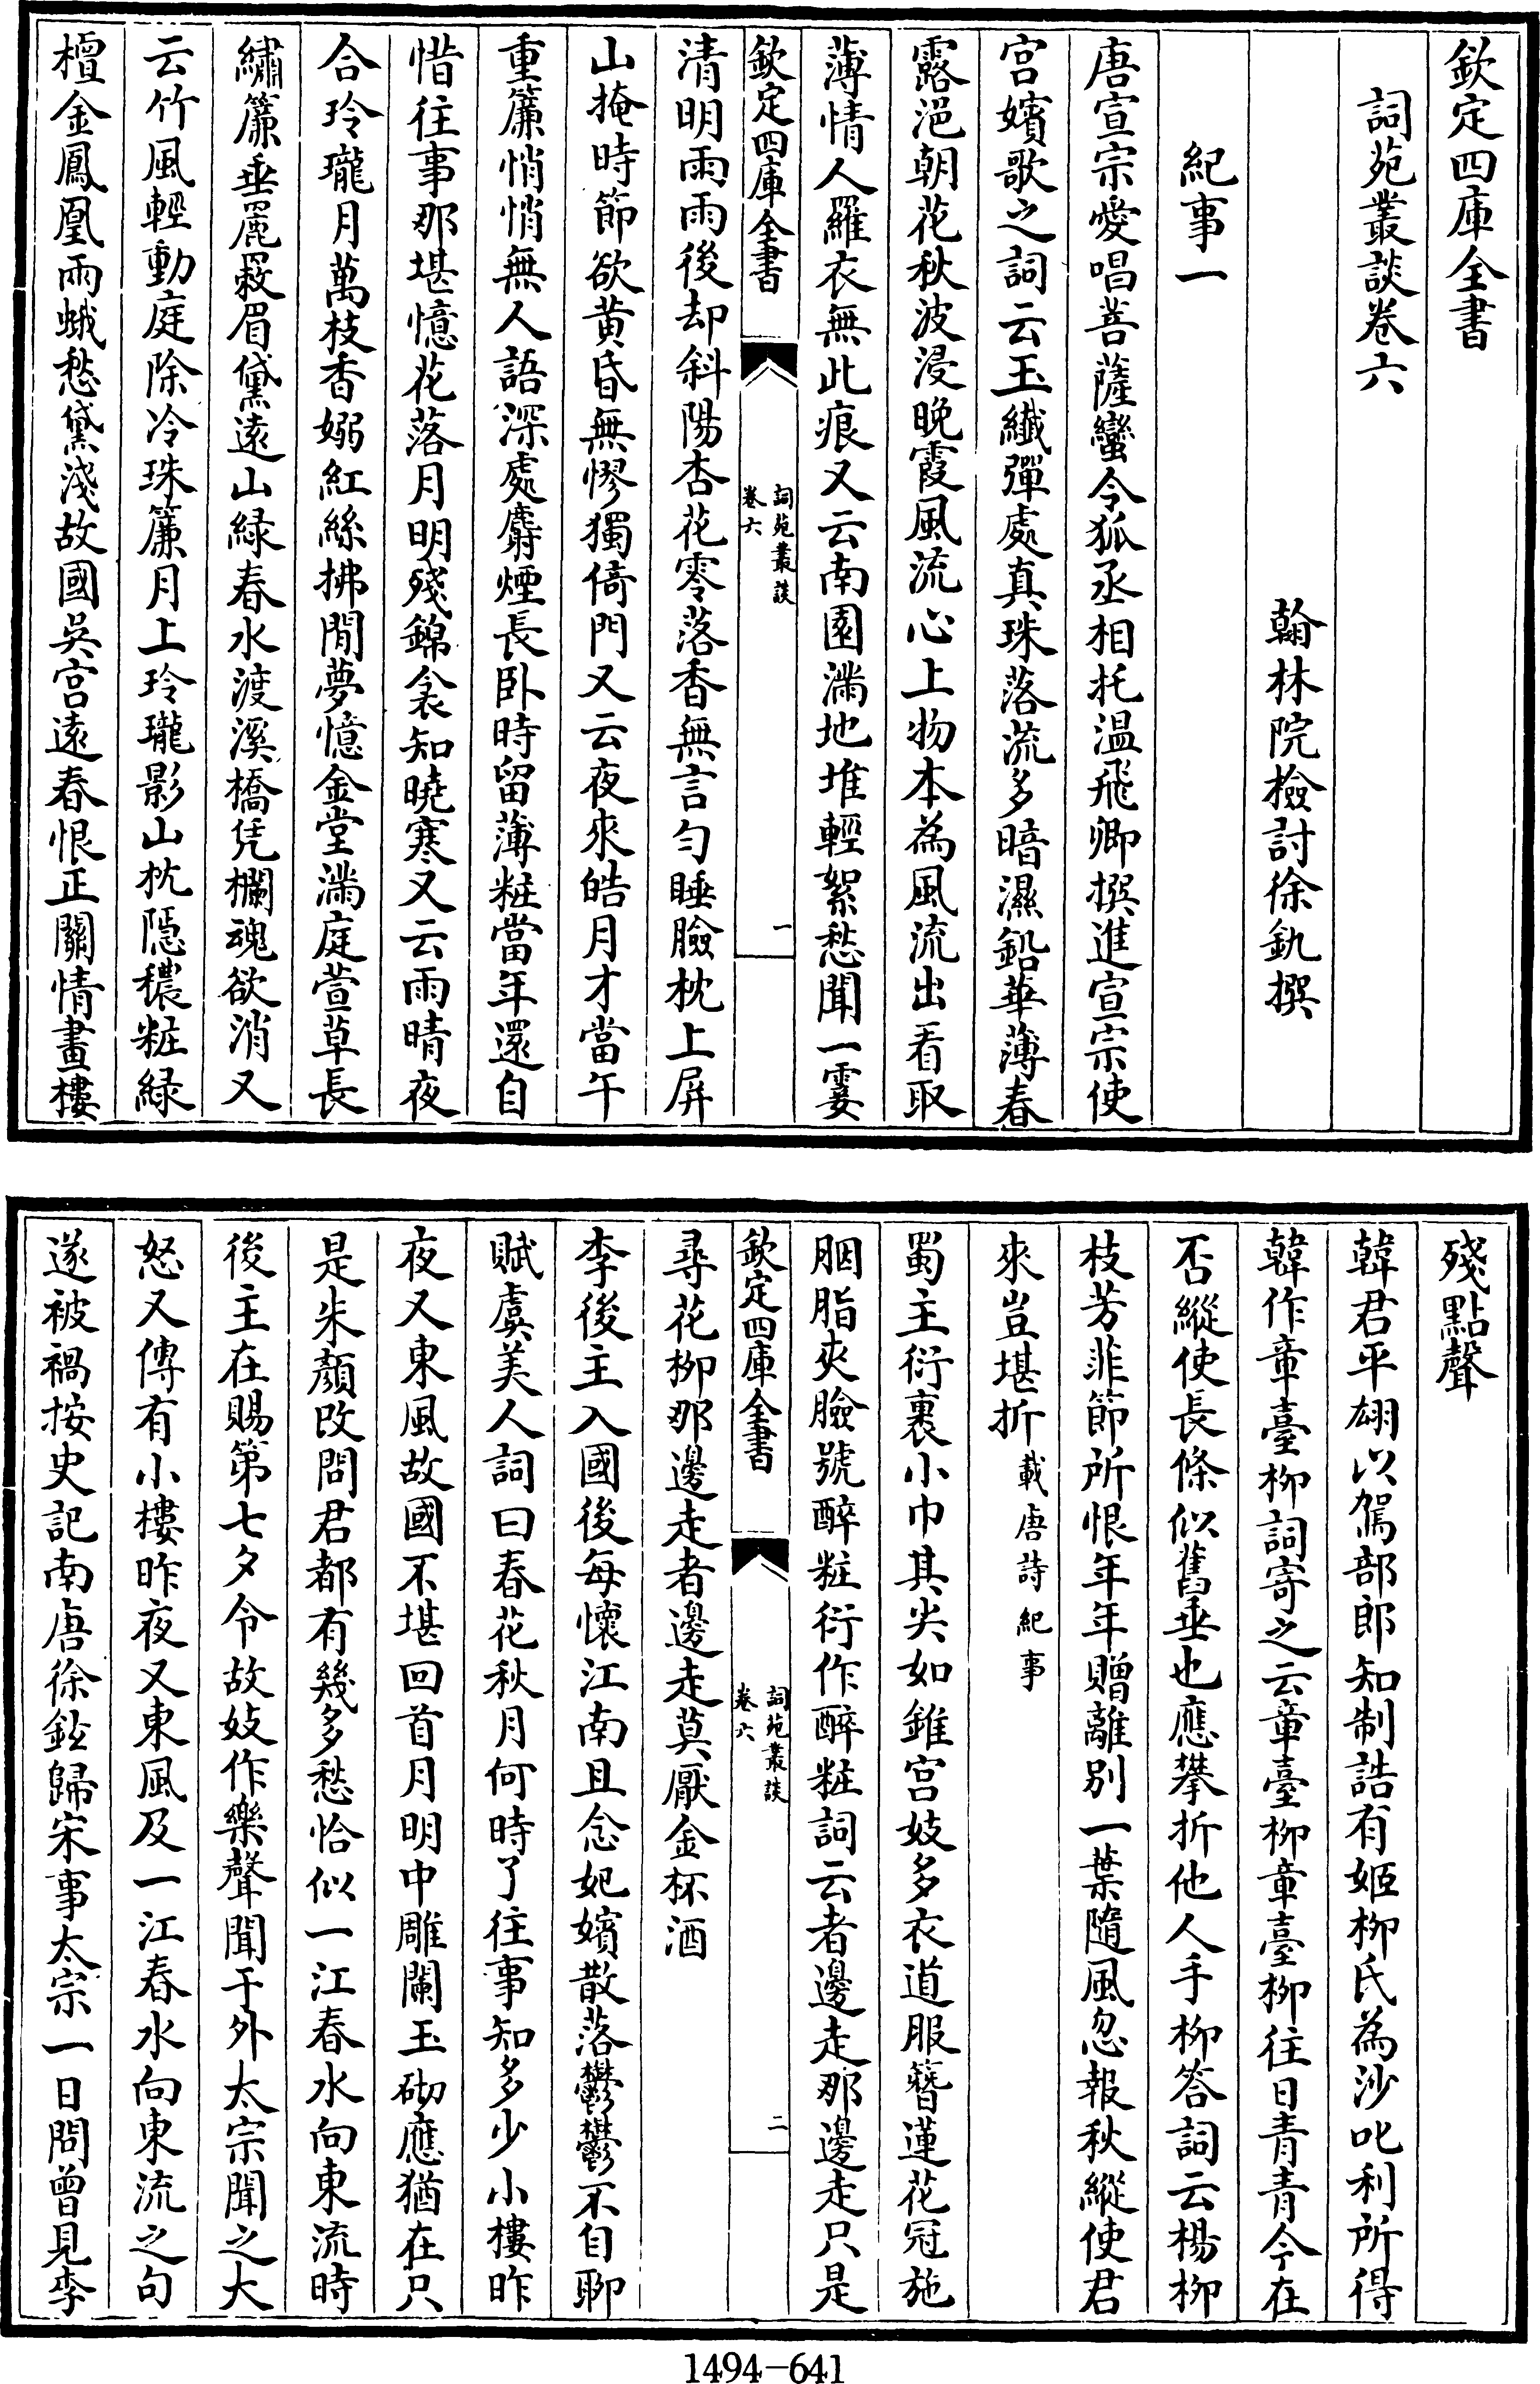 欽定四庫全書
詞苑叢談卷六
翰林院檢討徐釚撰
紀事一
唐宣宗愛唱菩薩蠻令狐丞相托温飛卿撰進宣宗使
宫嬪歌之詞云玉纖彈處真珠落流多暗濕鉛華薄春
露浥朝花秋波浸晚霞風流心上物本為風流出看取
薄情人羅衣無此痕又云南園滿地堆輕絮愁聞一霎
欽定四庫全書
詞苑叢談
卷六
一
清明雨雨後却斜陽杏花零落香無言勻睡臉枕上屏
山掩時節欲黄昏無憀獨倚門又云夜來皓月才當午
重簾悄悄無人語深處麝煙長卧時留薄粧當年還自
惜往事那堪憶花落月明殘錦衾知曉寒又云雨晴夜
合玲瓏月萬枝香嫋紅絲拂閒夢憶金堂滿庭萱草長
繡簾垂罷䍡眉黛遠山緑春水渡溪橋凭欄魂欲消又
云竹風輕動庭除冷珠簾月上玲瓏影山枕隱穠粧緑
檀金鳳凰兩蛾愁黛淺故國吳宫遠春恨正關情畫樓
殘點聲
韓君平翃以駕部郎知制誥有姬柳氏為沙叱利所得
韓作章臺柳詞寄之云章臺柳章臺柳往日青青今在
否縱使長條似舊垂也應攀折他人手柳答詞云楊柳
枝芳菲節所恨年年贈離别一葉隨風忽報秋縱使君
來豈堪折載唐詩紀事
蜀主衍裹小巾其尖如錐宫妓多衣道服簪蓮花冠施
胭脂夾臉號醉粧衍作醉粧詞云者邊走那邊走只是
欽定四庫全書
詞苑叢談
卷六
二
尋花柳那邊走者邊走莫厭金杯酒
李後主入國後每懷江南且念妃嬪散落鬱鬱不自聊
賦虞美人詞曰春花秋月何時了往事知多少小樓昨
夜又東風故國不堪回首月明中雕闌玉砌應猶在只
是朱顔改問君都有幾多愁恰似一江春水向東流時
後主在賜第七夕令故妓作樂聲聞于外太宗聞之大
怒又傳有小樓昨夜又東風及一江春水向東流之句
遂被禍按史記南唐徐鉉歸宋事太宗一日問曾見李
1494-641